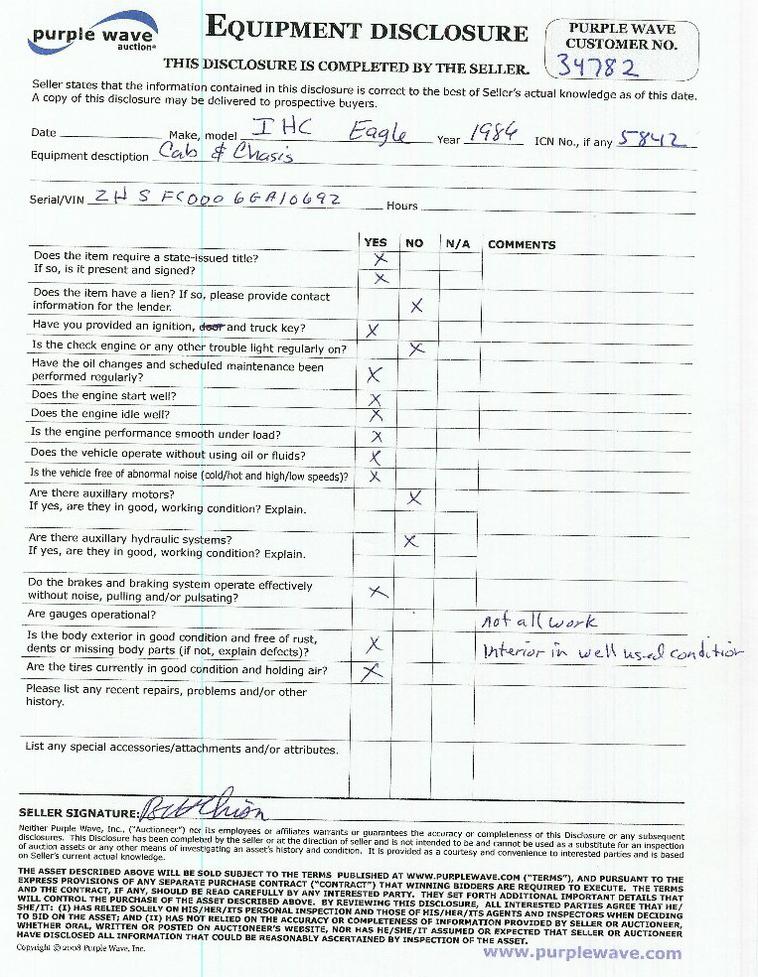 purple wave
auction®
EQUIPMENT DISCLOSURE
PURPLE WAVE
CUSTOMER NO.
34782
THIS DISCLOSURE IS COMPLETED BY THE SELLER.
Seller states that the information contained in this disclosure is correct to the best of Seller's actual knowledge as of this date.
A copy of this disclosure may be delivered to prospective buyers.
Date Make, model IHC Eagle Year 1986 ICN No., if any 5842
Equipment desctiption Cab & Chasis
Serial/VIN 2HSFC0006GA10692 Hours
YES NO N/A COMMENTS
Does the item require a state-issued title? X
If so, is it present and signed? X
Does the item have a lien? If so, please provide contact
information for the lender. X
Have you provided an ignition, door and truck key? X
Is the check engine or any other trouble light regularly on? X
Have the oil changes and scheduled maintenance been
performed regularly? X
Does the engine start well? X
Does the engine idle well? X
Is the engine performance smooth under load? X
Does the vehicle operate without using oil or fluids? X
Is the vehicle free of abnormal noise (cold/hot and high/low speeds)? X
Are there auxillary motors? X
If yes, are they in good, working condition? Explain.
Are there auxillary hydraulic systems? X
If yes, are they in good, working condition? Explain.
Do the brakes and braking system operate effectively
without noise, pulling and/or pulsating? X
Are gauges operational? not all work
Is the body exterior in good condition and free of rust,
dents or missing body parts (if not, explain defects)? X Interior in well used condition
Are the tires currently in good condition and holding air? X
Please list any recent repairs, problems and/or other
history.
List any special accessories/attachments and/or attributes.
SELLER SIGNATURE:
Neither Purple Wave, Inc., ("Auctioneer") nor its employees or affiliates warrants or guarantees the accuracy or completeness of this Disclosure or any subsequent
disclosures. This Disclosure has been completed by the seller or at the direction of seller and is not intended to be and cannot be used as a substitute for an inspection
of auction assets or any other means of investigating an asset's history and condition. It is provided as a courtesy and convenience to interested parties and is based
on Seller's current actual knowledge.
THE ASSET DESCRIBED ABOVE WILL BE SOLD SUBJECT TO THE TERMS PUBLISHED AT WWW.PURPLEWAVE.COM ("TERMS"), AND PURSUANT TO THE
EXPRESS PROVISIONS OF ANY SEPARATE PURCHASE CONTRACT ("CONTRACT") THAT WINNING BIDDERS ARE REQUIRED TO EXECUTE. THE TERMS
AND THE CONTRACT, IF ANY, SHOULD BE READ CAREFULLY BY ANY INTERESTED PARTY. THEY SET FORTH ADDITIONAL IMPORTANT DETAILS THAT
WILL CONTROL THE PURCHASE OF THE ASSET DESCRIBED ABOVE. BY REVIEWING THIS DISCLOSURE, ALL INTERESTED PARTIES AGREE THAT HE/
SHE/IT: (I) HAS RELIED SOLELY ON HIS/HER/ITS PERSONAL INSPECTION AND THOSE OF HIS/HER/ITS AGENTS AND INSPECTORS WHEN DECIDING
TO BID ON THE ASSET; AND (II) HAS NOT RELIED ON THE ACCURACY OR COMPLETENESS OF INFORMATION PROVIDED BY SELLER OR AUCTIONEER,
WHETHER ORAL, WRITTEN OR POSTED ON AUCTIONEER'S WEBSITE, NOR HAS HE/SHE/IT ASSUMED OR EXPECTED THAT SELLER OR AUCTIONEER
HAVE DISCLOSED ALL INFORMATION THAT COULD BE REASONABLY ASCERTAINED BY INSPECTION OF THE ASSET.
Copyright © 2008 Purple Wave, Inc.
www.purplewave.com